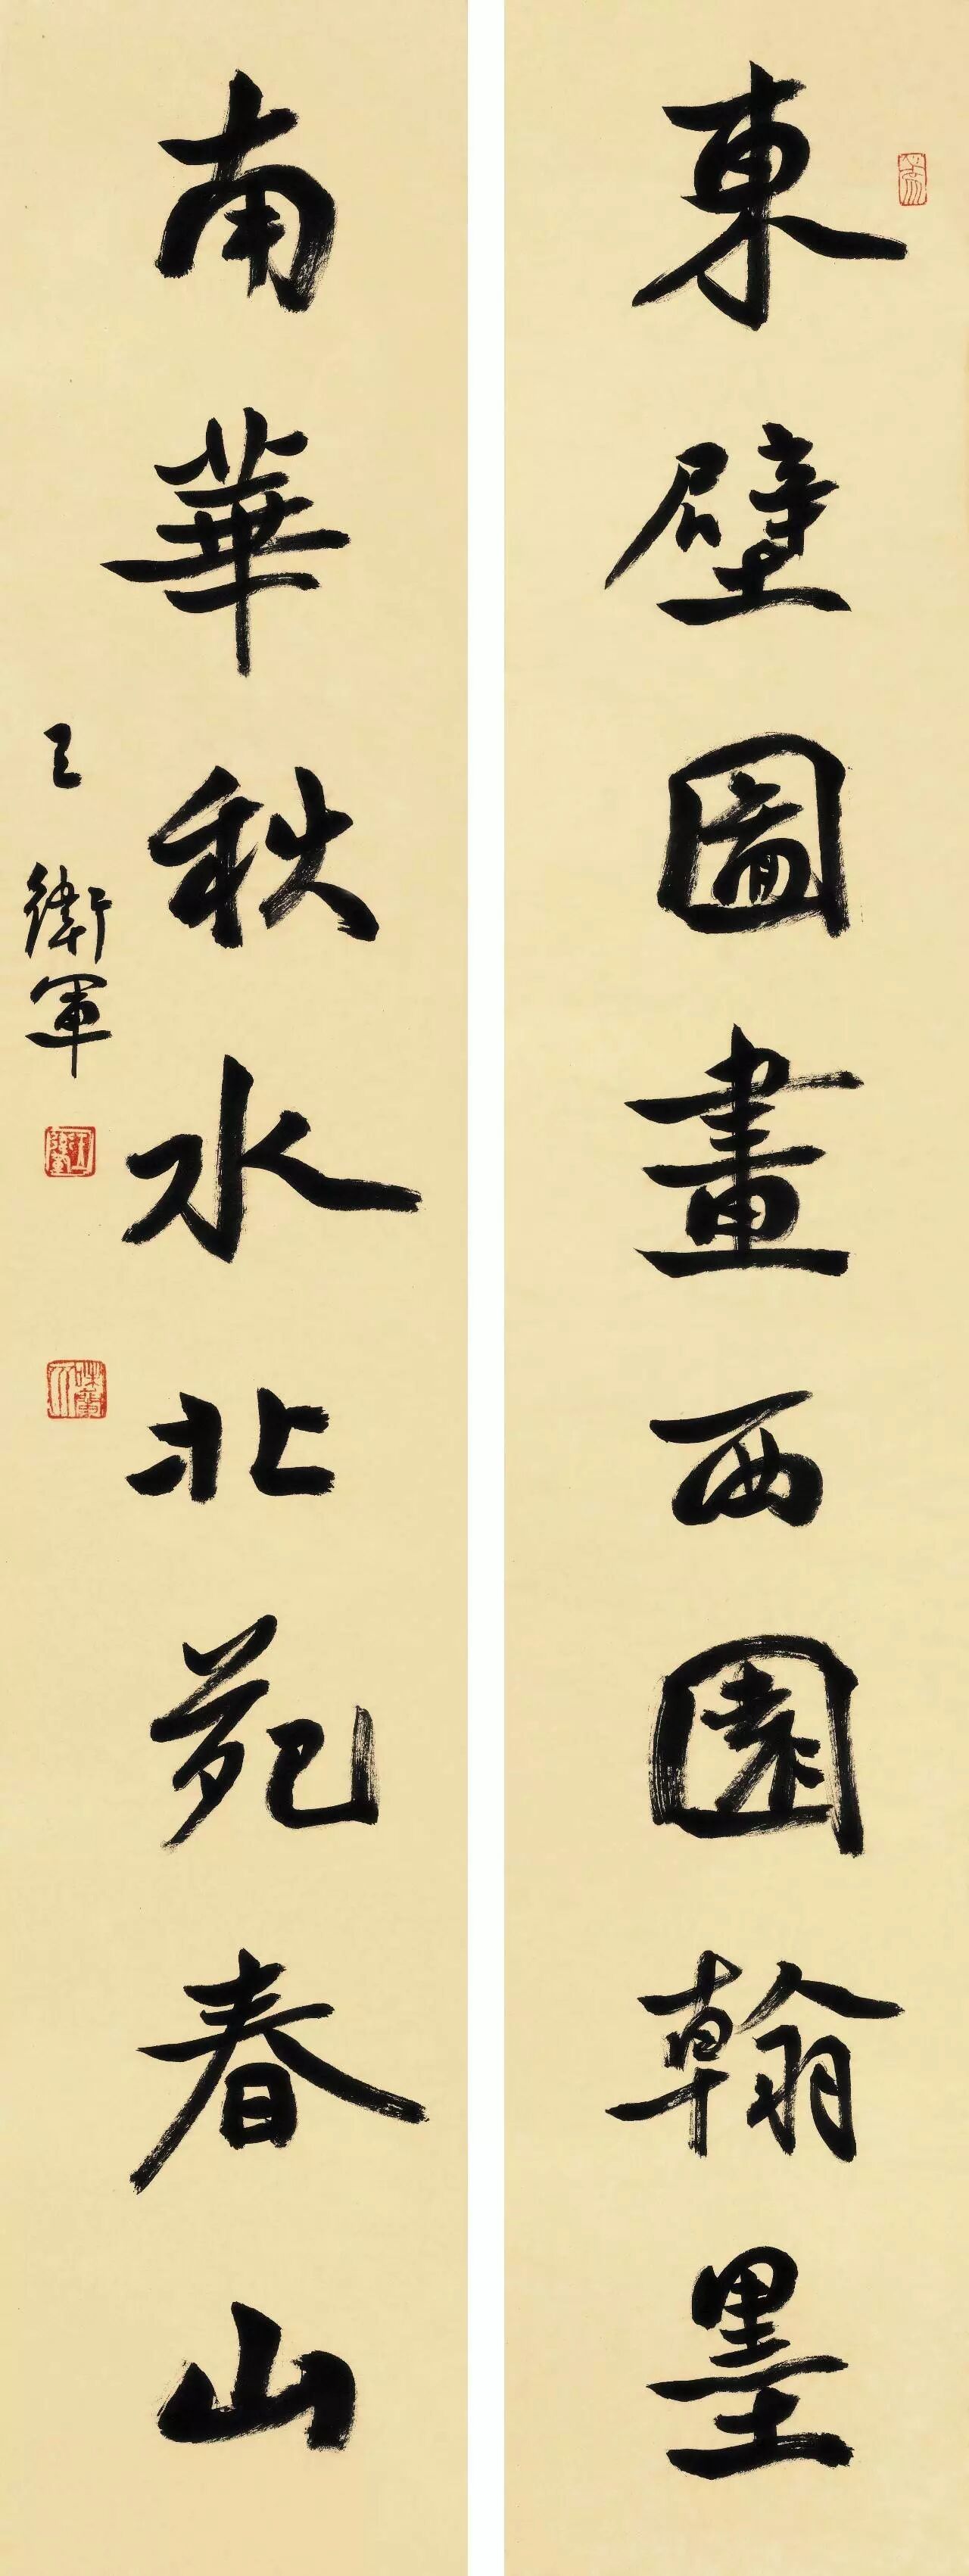 東壁圖畫西園翰墨
南華秋水北苑春山
王衛軍